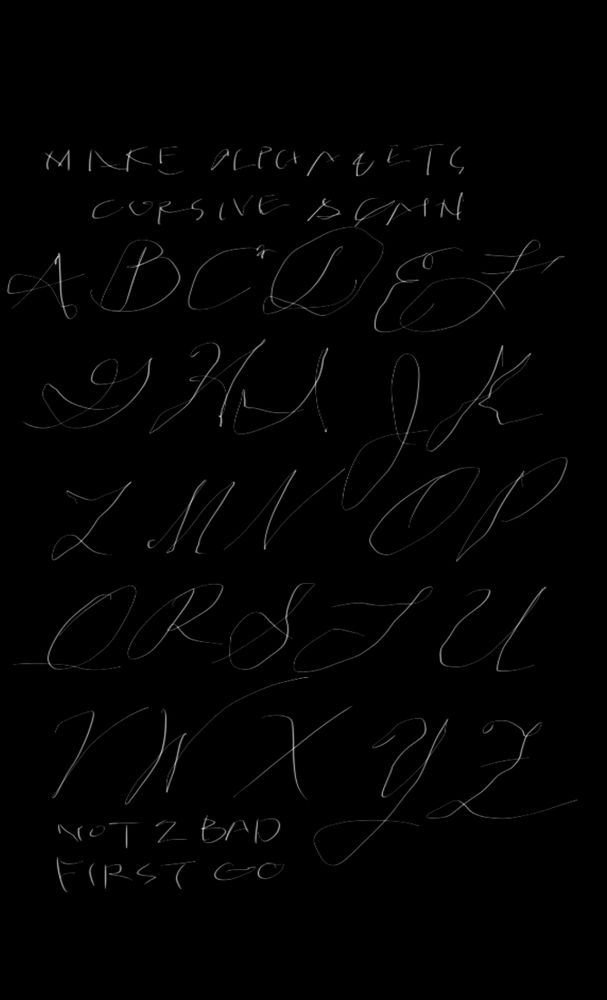 MAKE ALPHABETS
CURSIVE AGAIN
A B C D E F
G H I J K
L M N O P
Q R S T U
V W X Y Z
NOT 2 BAD
FIRST GO